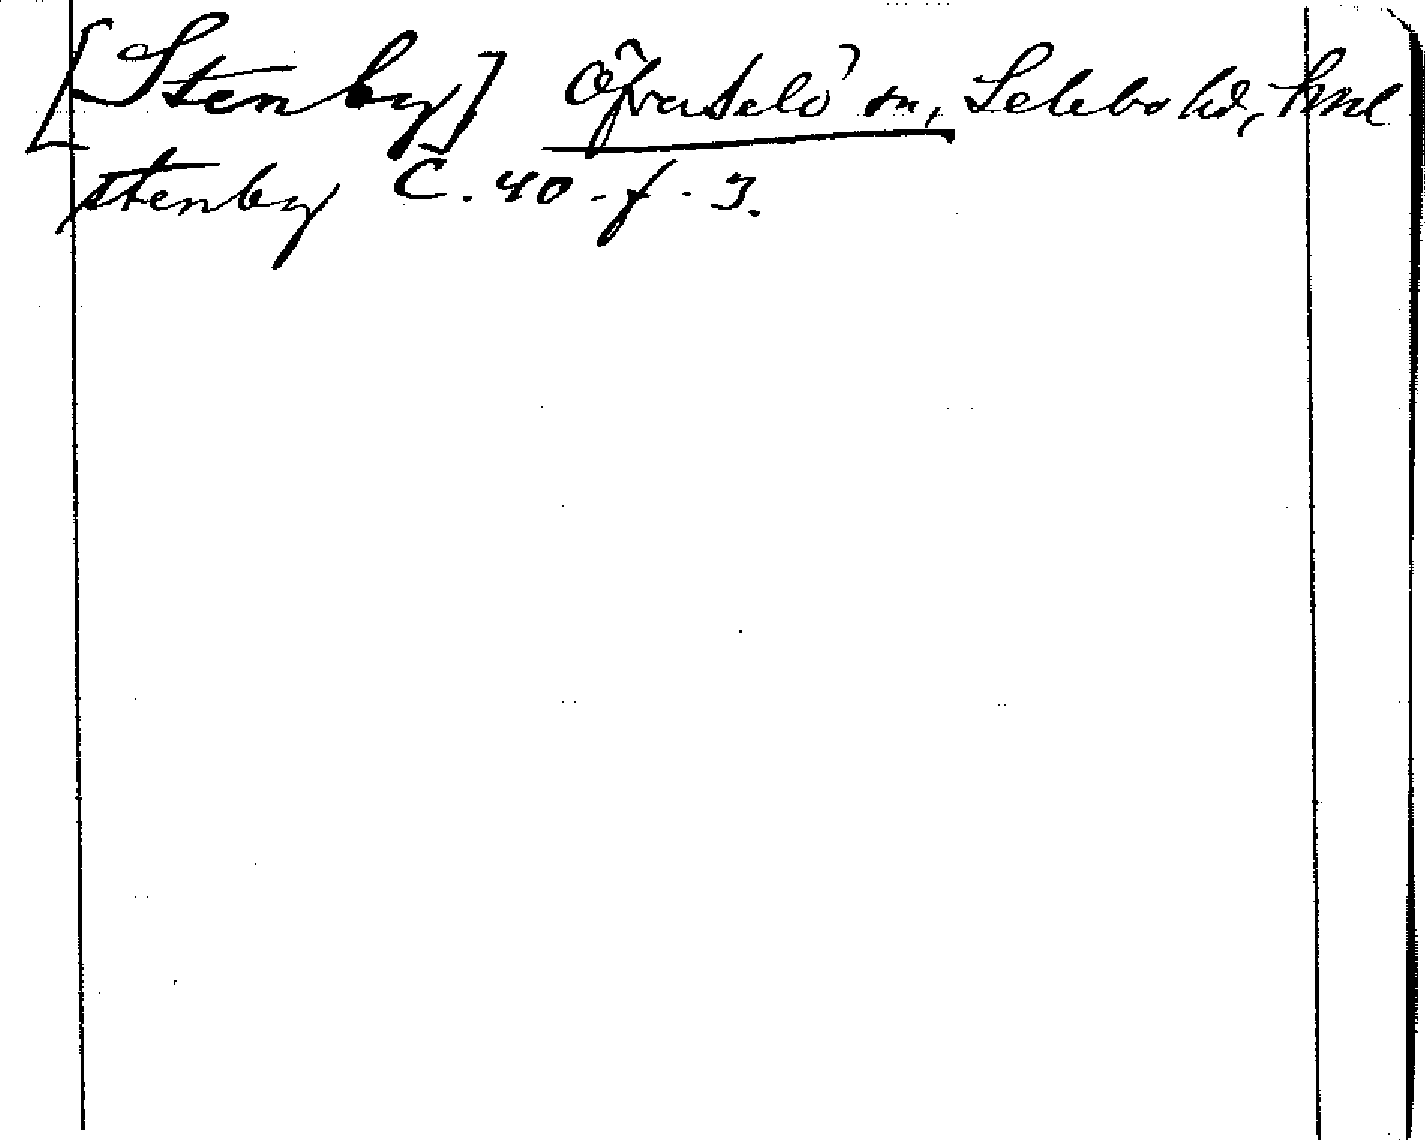 [Stenby] Öfverselö sn, Selebo hd, Sml
Stenby C. 40 - f - 3.